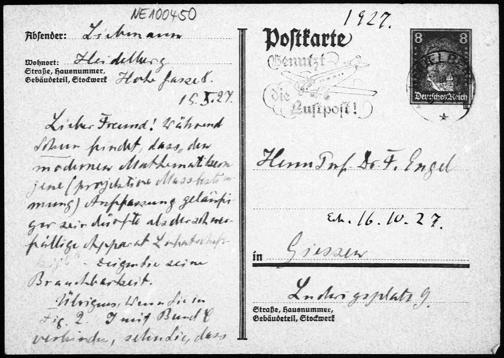 NE100450
Absender: Liebmann
Wohnort: Heidelberg
Straße, Hausnummer,
Gebäudeteil, Stockwerk
15. X. 27.
Lieber Freund! Während
findet, dass den
modernen Mathematikern
jene (projektive Massbestim-
mung) Auffassung geläufi-
ger sein dürfte als der schwer-
fällige Apparat
seine
Brauchbarkeit.
Übrigens wenn Sie in
Fig. 2 J mit B und C
verbinden, sehn Sie, dass
1927.
Postkarte
Benutzt
die
Luftpost!
8 8
Deutsches Reich
Herrn Prof. Dr. F. Engel
16. 10. 27.
in Giessen
Ludwigsplatz 9.
Straße, Hausnummer,
Gebäudeteil, Stockwerk